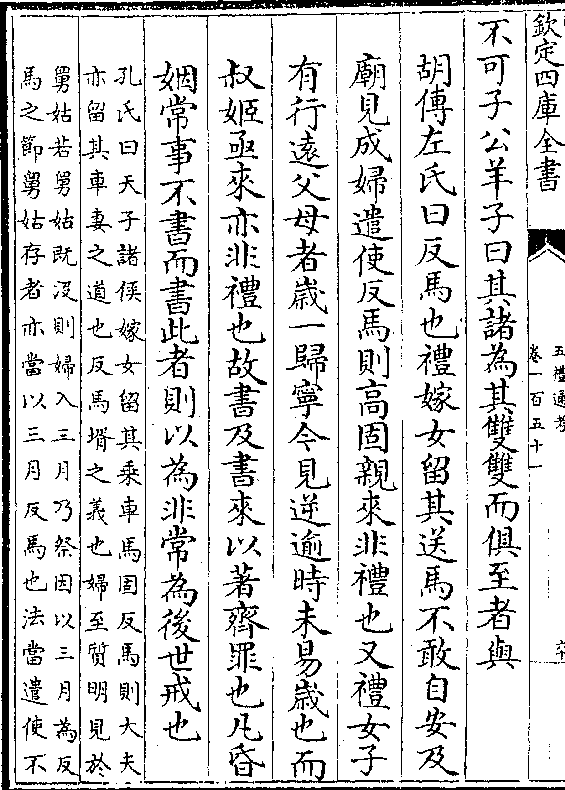 欽定四庫全書
五禮通考
卷一百五十一
不可子公羊子曰其諸為其雙雙而俱至者與
胡傳左氏曰反馬也禮嫁女留其送馬不敢自安及
廟見成婦遣使反馬則高固親來非禮也又禮女子
有行逺父母者嵗一歸寧今見逆逾時未易嵗也而
叔姬亟來亦非禮也故書及書來以著齊罪也凡昏
姻常事不書而書此者則以為非常為後世戒也
孔氏曰天子諸侯嫁女留其乘車馬固反馬則大夫
亦留其車妻之道也反馬壻之義也婦至質明見於
舅姑若舅姑既沒則婦入三月乃祭因以三月為反
馬之節舅姑存者亦當以三月反馬也法當遣使不